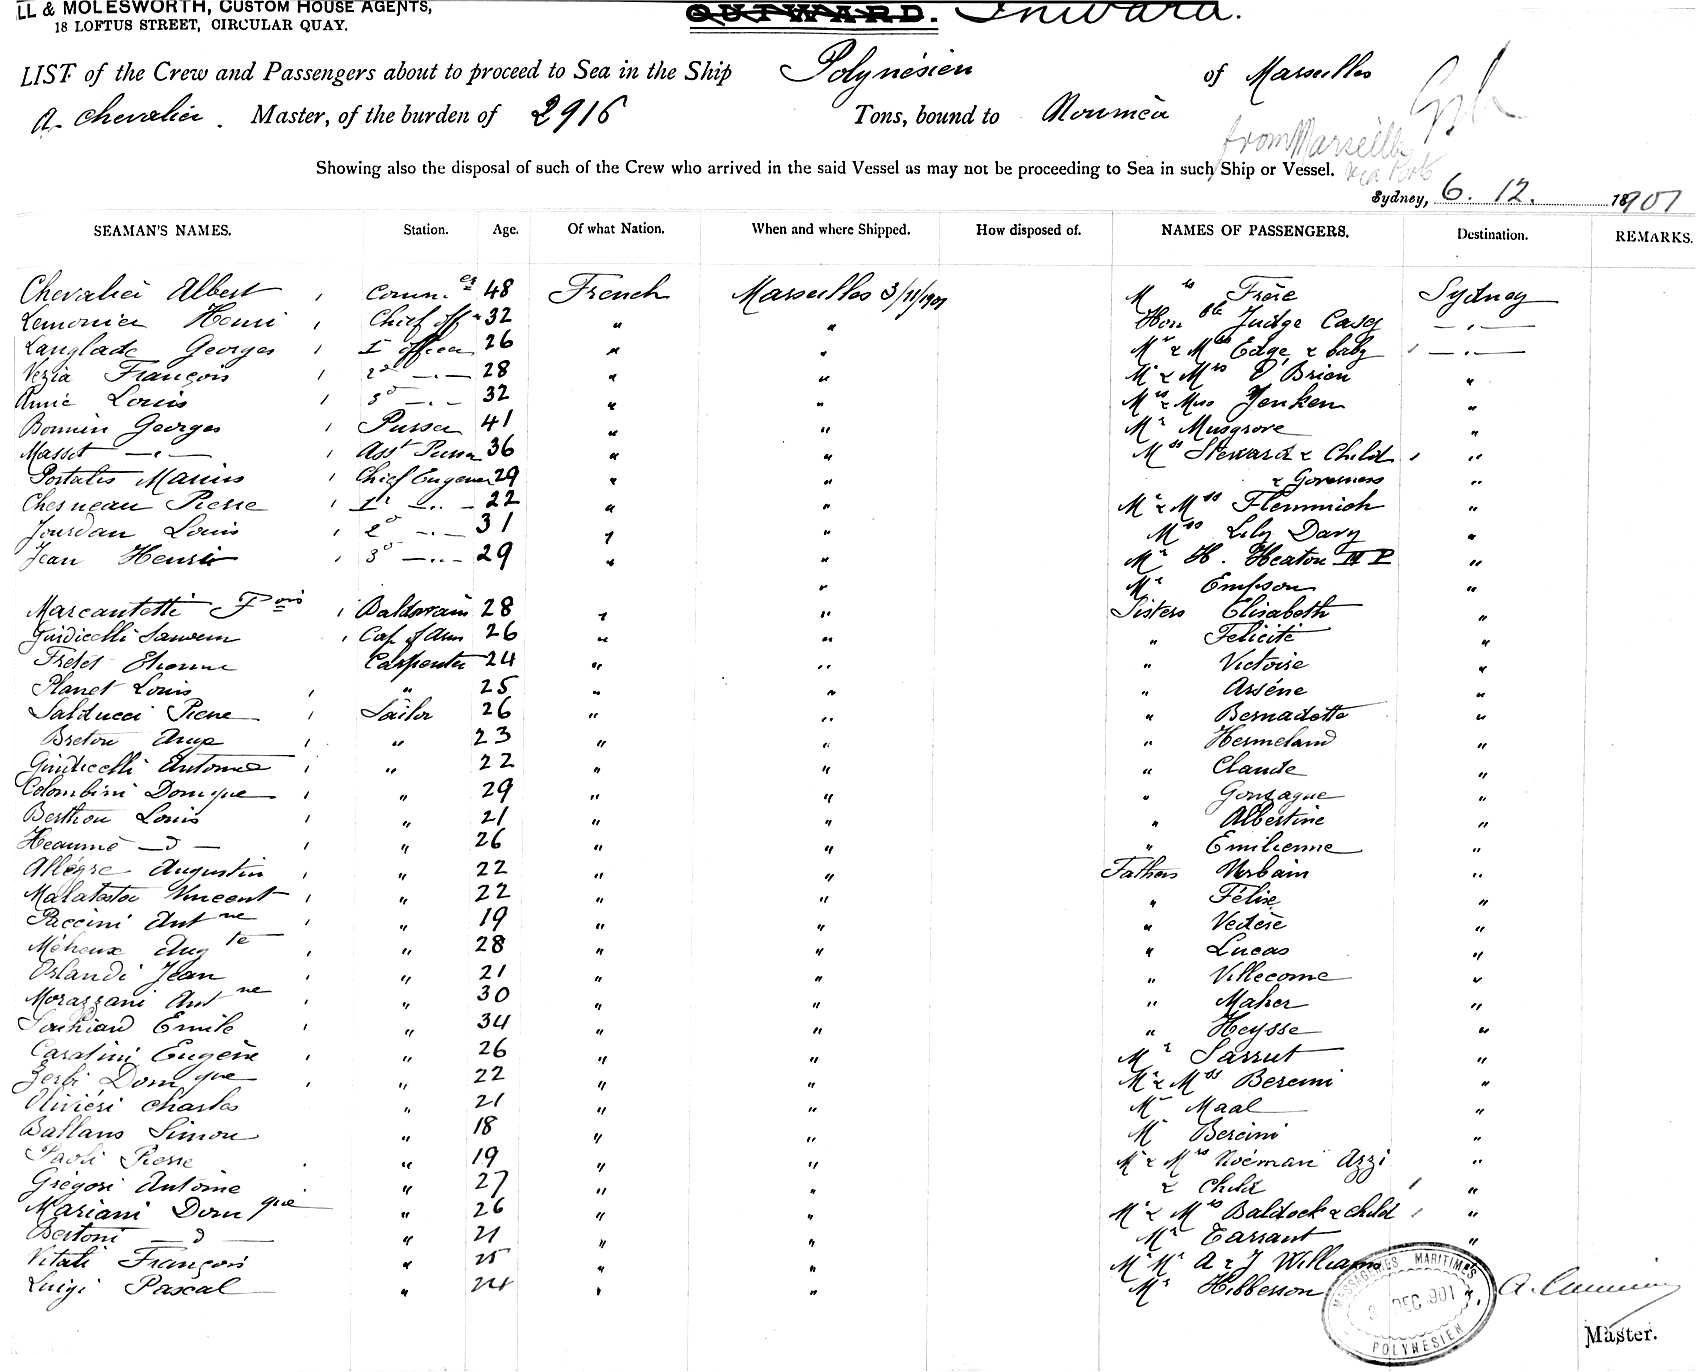 LL & MOLESWORTH, CUSTOM HOUSE AGENTS,
18 LOFTUS STREET, CIRCULAR QUAY.
OUTWARD. Inward.
LIST of the Crew and Passengers about to proceed to Sea in the Ship Polynésien of Marseilles
A. Chevalier. Master, of the burden of 2916 Tons, bound to Nouméa
from Marseilles
via Ports
Showing also the disposal of such of the Crew who arrived in the said Vessel as may not be proceeding to Sea in such Ship or Vessel.
Sydney, 6. 12. 1901
SEAMAN'S NAMES. Station. Age. Of what Nation. When and where Shipped. How disposed of. NAMES OF PASSENGERS. Destination. REMARKS.
Chevalier Albert Comm.er 48 French Marseilles 3/11/1901 Mrs Frère Sydney
Lemonier Henri Chief off 32 " " Honble Judge Casey — " —
Langlade Georges 1r officer 26 " " Mr & Mrs Edge, & baby — " —
Vezia François 2d — " — 28 " " Mr & Mrs O'Brien "
Louis 3d — " — 32 " " Mrs & Miss Jenken "
Bonnin Georges Purser 41 " " Mr Musgrove "
Masset — " — Asst Purser 36 " " Mrs Steward & Child "
Portalis Marius Chief Engeneer 29 " " & Governess "
Chesneau Pierre 1r — " — 22 " " Mr & Mrs Flemmich "
Jourdan Louis 2d — " — 31 " " Mrs Lily Davy "
Jean Henri 3d — " — 29 " " Mr H. Heaton M P "
" Mr Empson "
Marcantetti Fçois 28 " " Sisters Elisabeth "
Giudicelli Cap. d'Arm 26 " " " Felicité "
Fretet Etienne Carpenter 24 " " " Victoire "
Planet Louis " 25 " " " Arséne "
Salducci Pierre Sailor 26 " " " Bernadette "
Breton " 23 " " " Hermeland "
Giudicelli Antoine " 22 " " " Claude "
Colombini Domique " 29 " " " Gonzague "
Berthou Louis " 21 " " " Albertine "
Heaumé — d — " 26 " " " Emilienne "
Allégre Augustin " 22 " " Fathers Urbain "
Malatesta Vincent " 22 " " " Félix "
Paccini Antne " 19 " " " "
Méheux Augte " 28 " " " Lucas "
Orlandi Jean " 21 " " " Villecome "
Morazzani Antne " 30 " " " Maher "
Emile " 34 " " " Heysse "
Casalini Eugène " 26 " " Mr Sarrut "
Zerbi Domque " 22 " " Mr & Mrs Bercini "
Oliviéri Charles " 21 " " Mr Maal "
Ballans Simon " 18 " " Mr Bercini "
Paoli Pierre " 19 " " Mr & Mrs Noéman Azzi "
Grégori Antoine " 27 " " & Child "
Mariani Domque " 26 " " Mr & Mrs Baldock & child "
Bertoni — d — " 21 " " Mr Tarrant "
Vitali François " 25 " " Mr Mr A & J Williams
Luigi Pascal " 24 " " Mr Hibberson
MESSAGERIES MARITIMES
DEC 1901
POLYNÉSIEN
Master.